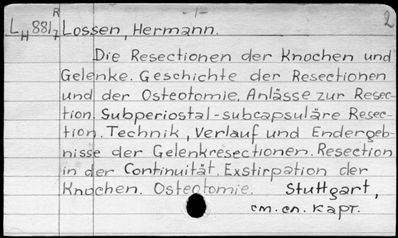 -1-
R 2
L H 88/7 Lossen, Hermann.
Die Resectionen der Knochen und
Gelenke. Geschichte der Resectionen
und der Osteotomie. Anlässe zur Resec-
tion. Subperiostal-subcapsuläre Resec-
tion. Technik, Verlauf und Endergeb-
nisse der Gelenkresectionen. Resection
in der Continuität. Exstirpation der
Knochen. Osteotomie. Stuttgart,
см. сл. карт.